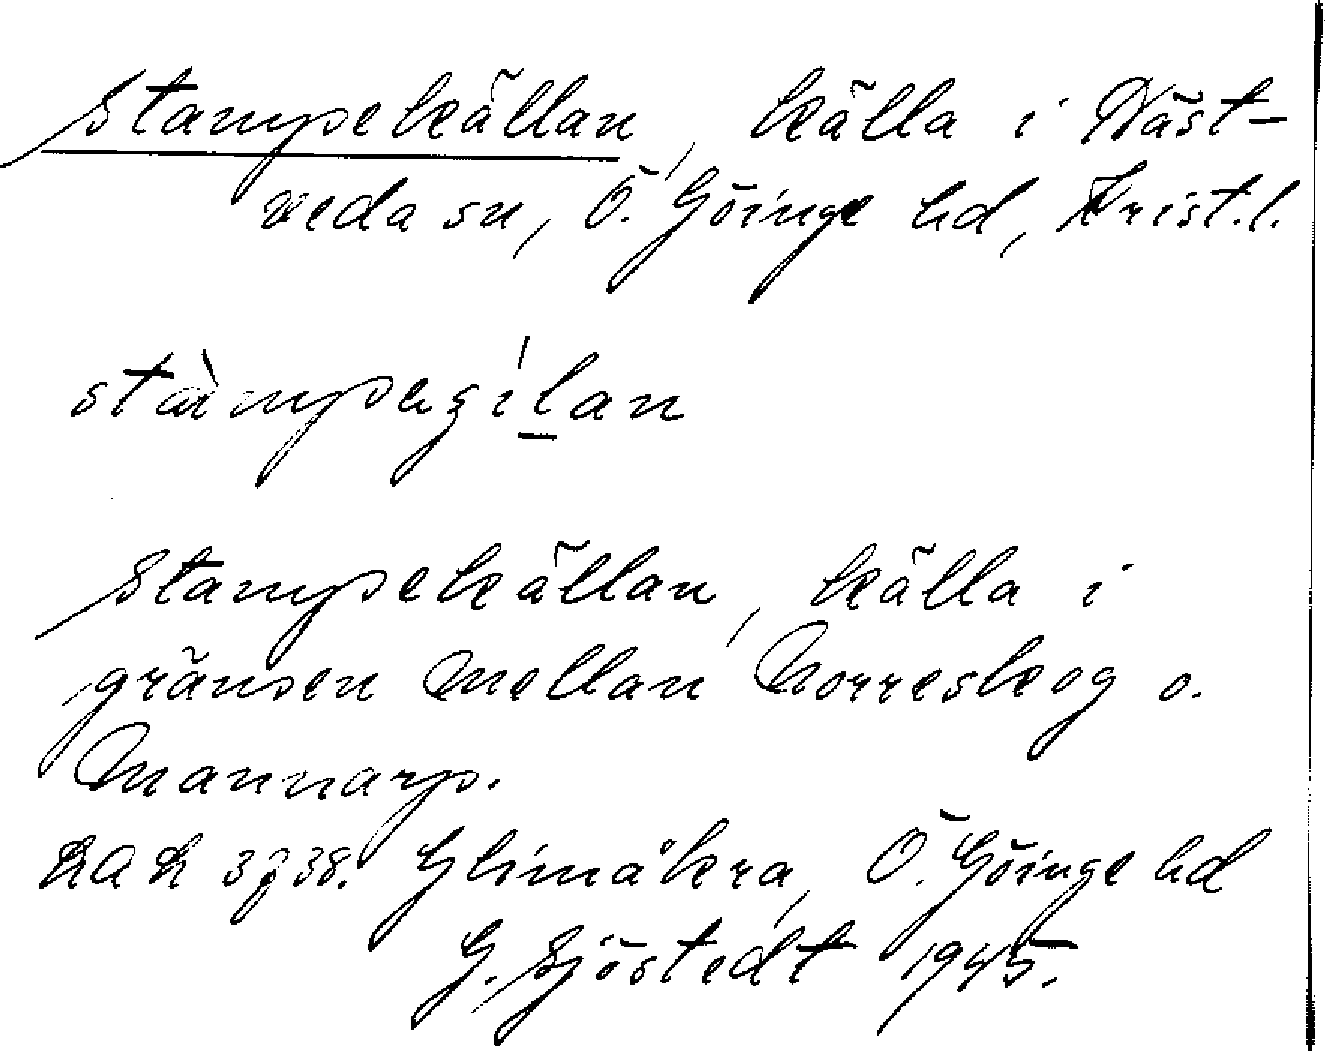 Stampekällan, källa i Näst-
veda sn, Ö. Göinge hd, Krist.l.
stàmpegílan
Stampekällan, källa i
gränsen mellan Norreskog o.
Mannarp.
RAK 3938. Glimåkra, Ö. Göinge hd
G. Sjöstedt 1945.